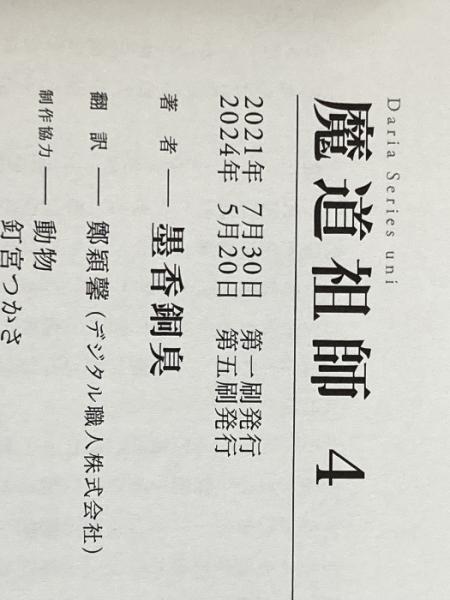 Daria Series uni
魔道祖師 4
2021年 7月30日 第一刷発行
2024年 5月20日 第五刷発行
著 者 ── 墨香銅臭
翻 訳 ── 鄭穎馨(デジタル職人株式会社)
制作協力 ── 動物
釘宮つかさ